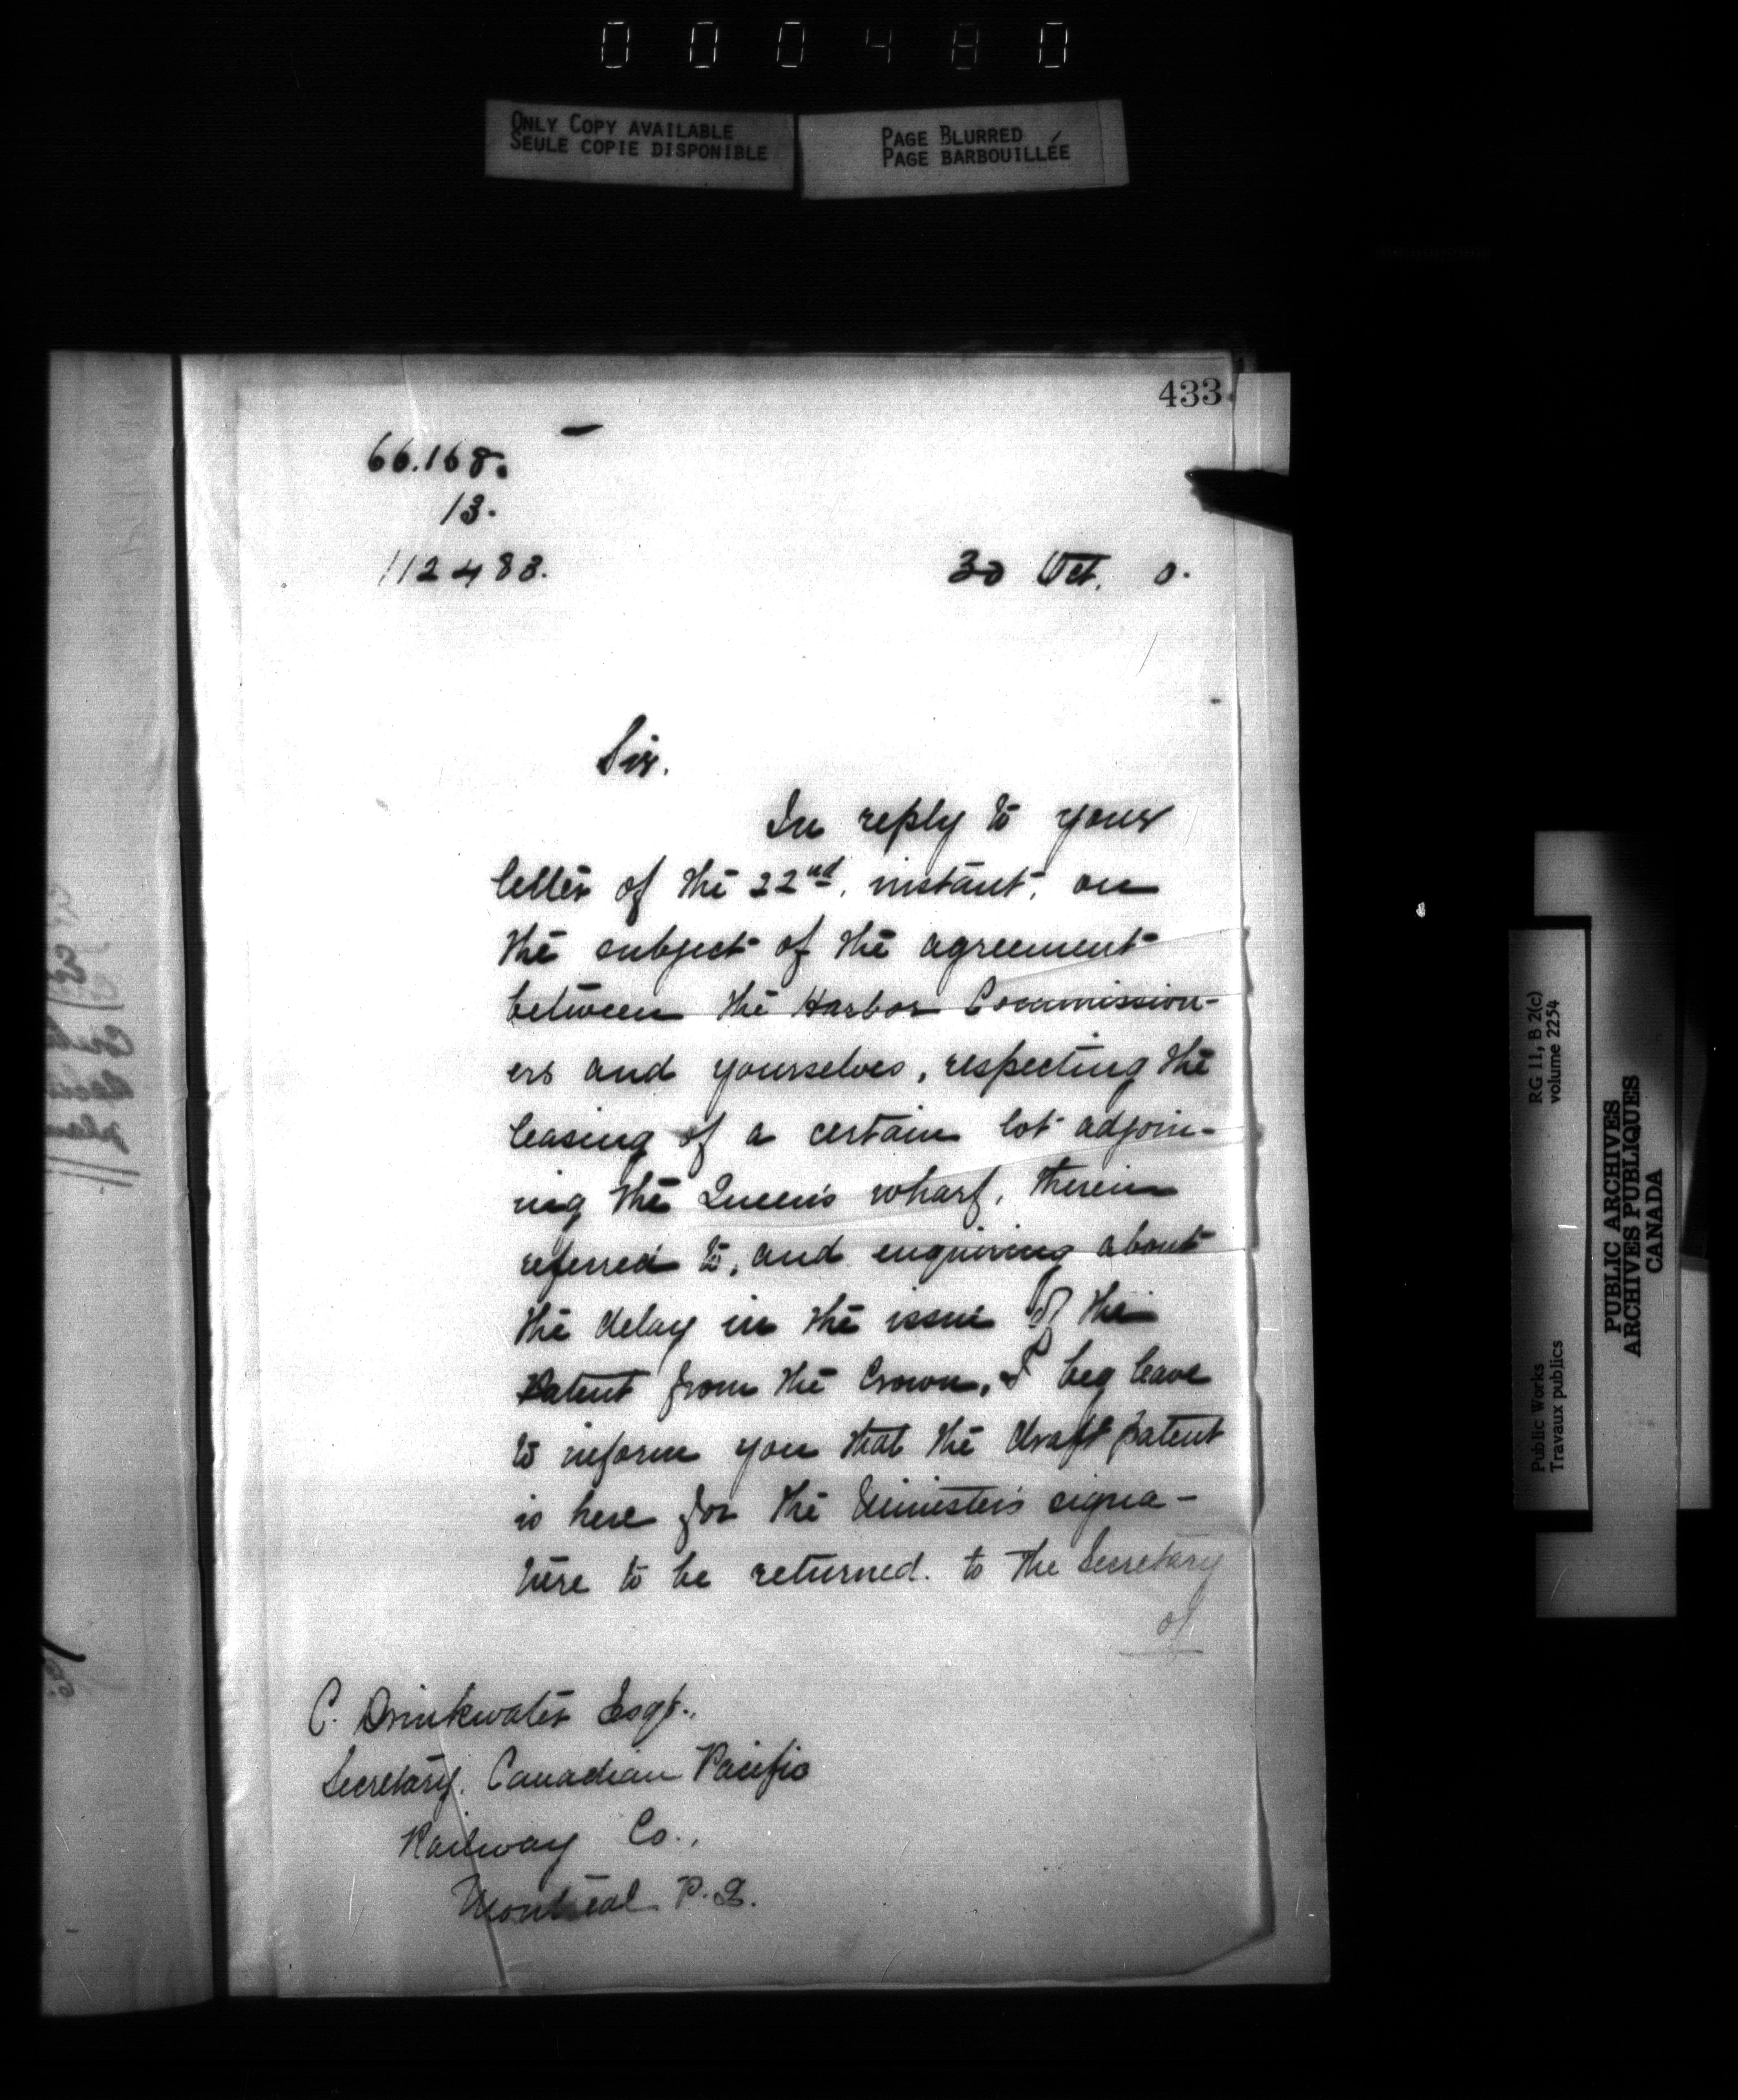 000480
ONLY COPY AVAILABLE
SEULE COPIE DISPONIBLE
PAGE BLURRED
PAGE BARBOUILLÉE
433
66.168.
13.
112483.
30 Oct. 0.
Sir.
In reply to your
letter of the 22nd. instant, on
the subject of the agreement
between the Harbor Commission-
ers and yourselves, respecting the
leasing of a certain lot adjoin-
ing the Queen's wharf, therein
referred to, and enquiring about
the delay in the issue of the
Patent from the Crown, I beg leave
to inform you that the draft patent
is here for the Minister's signa-
ture to be returned. to the Secretary
of
C. Drinkwater Esqr.,
Secretary. Canadian Pacific
Railway Co.,
Montreal P.Q.
RG 11, B 2(c)
volume 2254
Public Works
Travaux publics
PUBLIC ARCHIVES
ARCHIVES PUBLIQUES
CANADA